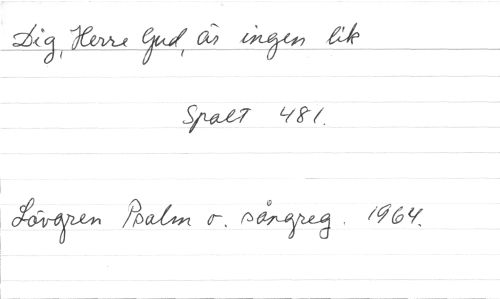 Dig, Herre Gud, är ingen lik
Spalt 481.
Lövgren Psalm o. sångreg. 1964.